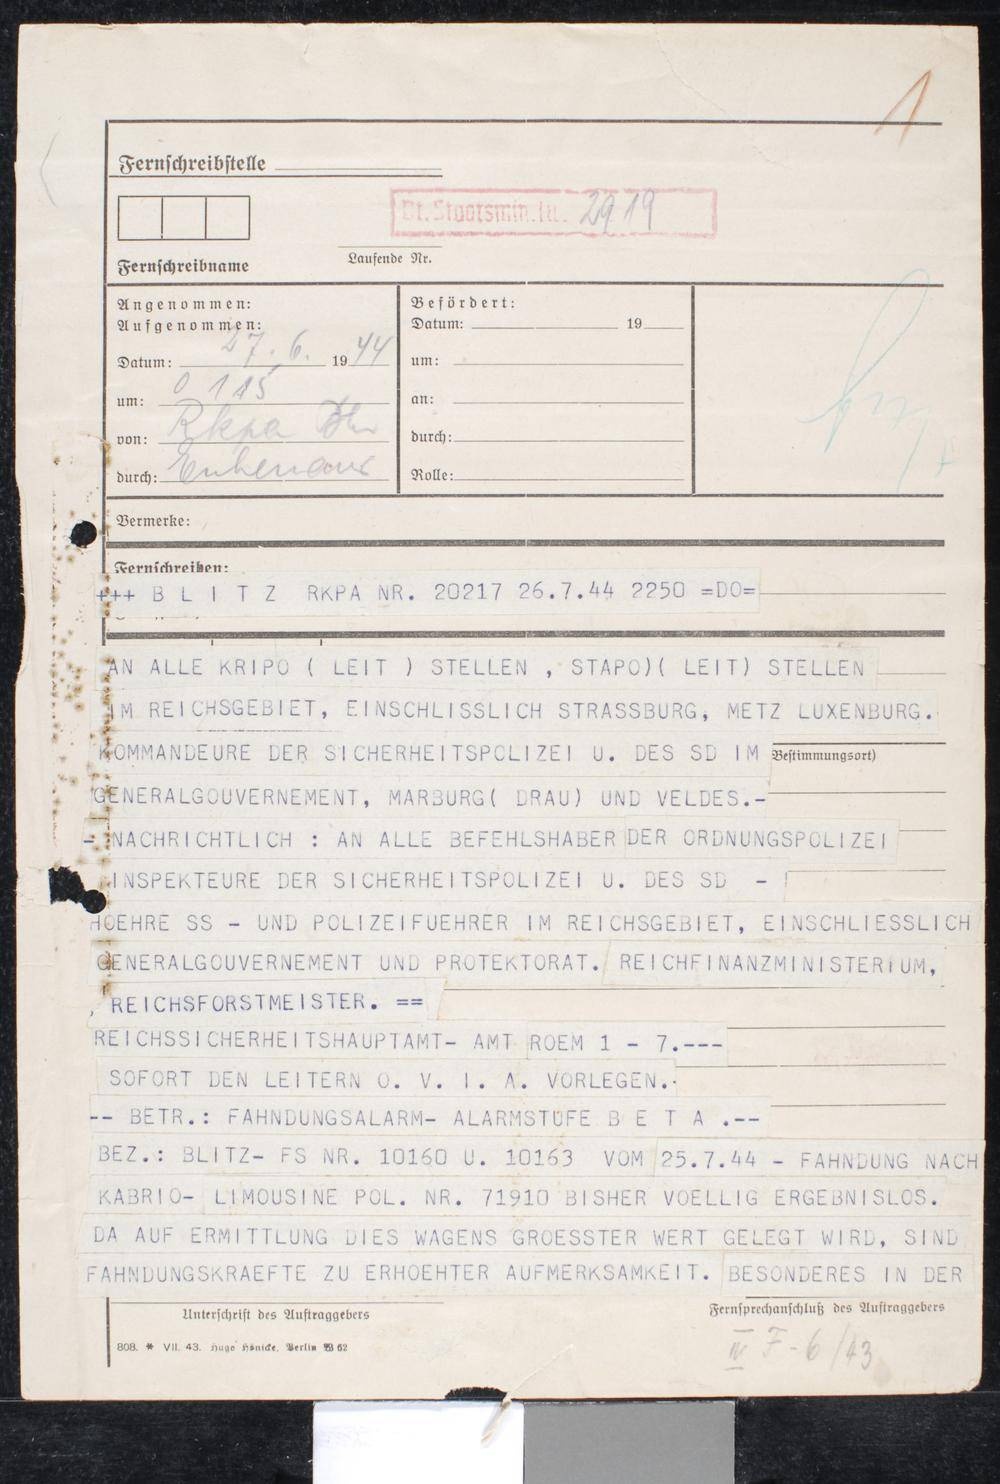 1
Fernschreibstelle
Dt. Staatsmin. 2919
Fernschreibname
Laufende Nr.
Angenommen:
Aufgenommen:
Datum: 27. 6. 1944
um: 0115
von: Rkpa Bln
durch:
Befördert:
Datum: 19
um:
an:
durch:
Rolle:
Vermerke:
Fernschreiben:
+++ B L I T Z RKPA NR. 20217 26.7.44 2250 =DO=
AN ALLE KRIPO ( LEIT ) STELLEN , STAPO)( LEIT) STELLEN
IM REICHSGEBIET, EINSCHLISSLICH STRASSBURG, METZ LUXENBURG.
KOMMANDEURE DER SICHERHEITSPOLIZEI U. DES SD IM
Bestimmungsort)
GENERALGOUVERNEMENT, MARBURG( DRAU) UND VELDES.-
- NACHRICHTLICH : AN ALLE BEFEHLSHABER DER ORDNUNGSPOLIZEI
INSPEKTEURE DER SICHERHEITSPOLIZEI U. DES SD -
HOEHRE SS - UND POLIZEIFUEHRER IM REICHSGEBIET, EINSCHLIESSLICH
GENERALGOUVERNEMENT UND PROTEKTORAT. REICHFINANZMINISTERIUM,
, REICHSFORSTMEISTER. ==
REICHSSICHERHEITSHAUPTAMT- AMT ROEM 1 - 7.---
SOFORT DEN LEITERN O. V. I. A. VORLEGEN.
-- BETR.: FAHNDUNGSALARM- ALARMSTUFE B E T A .--
BEZ.: BLITZ- FS NR. 10160 U. 10163 VOM 25.7.44 - FAHNDUNG NACH
KABRIO- LIMOUSINE POL. NR. 71910 BISHER VOELLIG ERGEBNISLOS.
DA AUF ERMITTLUNG DIES WAGENS GROESSTER WERT GELEGT WIRD, SIND
FAHNDUNGSKRAEFTE ZU ERHOEHTER AUFMERKSAMKEIT. BESONDERES IN DER
Unterschrift des Auftraggebers
Fernsprechanschluß des Auftraggebers
808. * VII. 43. Hugo Hönicke, Berlin W 62
IV F-6/43